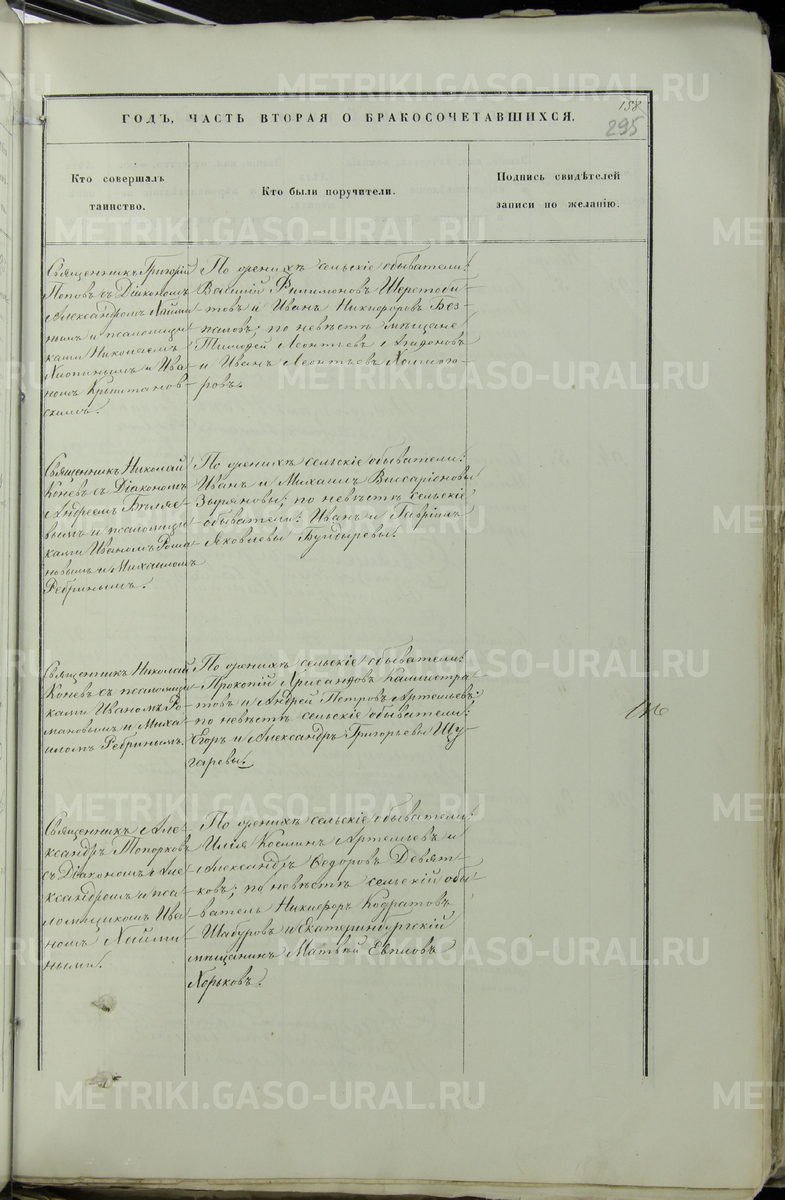 158
295
ГОДЪ, ЧАСТЬ ВТОРАЯ О БРАКОСОЧЕТАВШИХСЯ.
Кто совершалъ
таинство.
Кто были поручители.
Подпись свидѣтелей
записи по желанію.
Священникъ Григорій
Поповъ съ Діакономъ
Александромъ Найми
нымъ и псаломщи
ками Николаемъ
и Ива
номъ
скимъ.
По женихѣ сельскіе обыватели:
Василій Филимоновъ Шеретоби-
товъ и Иванъ Никифоровъ Без-
паловъ; по невѣстѣ мѣщане
Тимофей Леонтьевъ Агафоновъ
и Иванъ Леонтьевъ Холмого-
ровъ.
Священникъ Николай
Коневъ съ Діакономъ
Андреемъ Бѣляе-
вымъ и псаломщи
ками Иваномъ Рома
новымъ и Михаиломъ
Ребринымъ.
По женихѣ сельскіе обыватели:
Иванъ и Михаилъ Виссаріоновы
Зыряновы; по невѣстѣ сельскіе
обыватели: Иванъ и Гавріилъ
Яковлевы Бундыревы.
Священникъ Николай
Коневъ съ псаломщи
ками Иваномъ Ро
мановымъ и Миха
иломъ Ребринымъ.
По женихѣ сельскіе обыватели:
Прокопій Хрисанфовъ Каллистра
товъ и Андрей Петровъ Артемьевъ;
по невѣстѣ сельскіе обыватели:
Егоръ и Александръ Григорьевы Щу
гаревы.
Священникъ Але-
ксандръ Топорковъ
съ Діакономъ Але
ксандромъ и пса
ломщикомъ Ива
номъ Найми
нымъ.
По женихѣ сельскіе обыватели:
Илія Косминъ Артемьевъ и
Александръ Ѳедоровъ Девят-
ковъ; по невѣстѣ сельскій обы
ватель Никифоръ Кодратовъ
Шабуровъ и Екатеринбургскій
мѣщанинъ Матвѣй Евпловъ
Хорьковъ.
METRIKI.GASO-URAL.RU